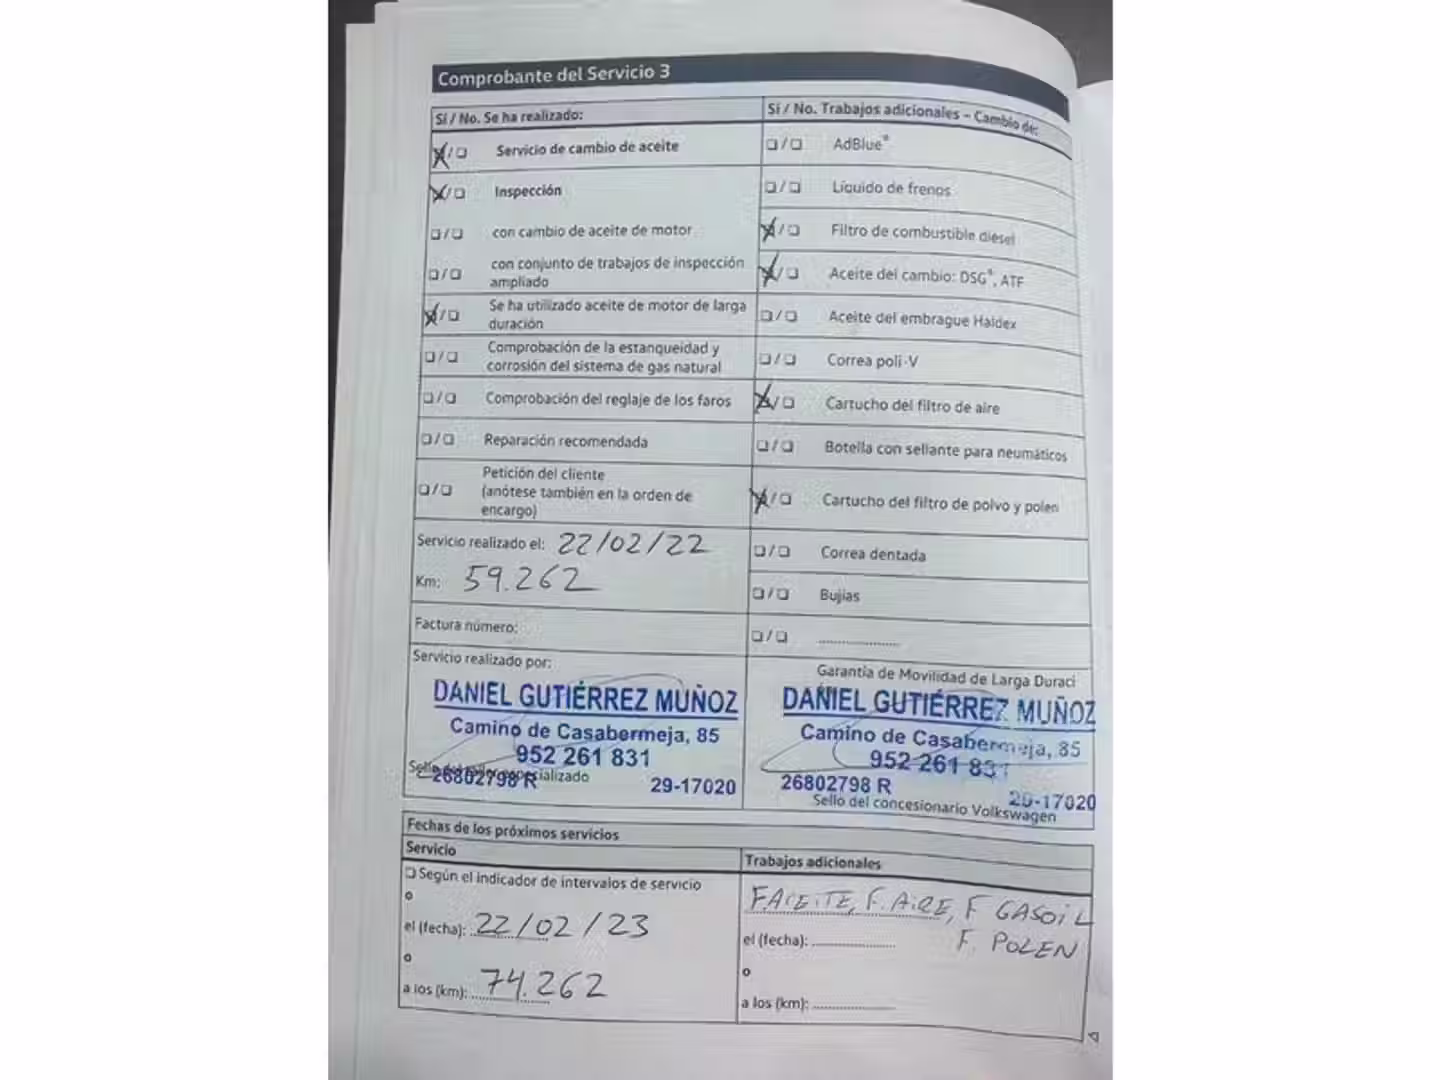 Comprobante del Servicio 3
Sí / No. Se ha realizado:
☒/☐ Servicio de cambio de aceite
☒/☐ Inspección
☐/☐ con cambio de aceite de motor
☐/☐ con conjunto de trabajos de inspección
ampliado
☒/☐ Se ha utilizado aceite de motor de larga
duración
☐/☐ Comprobación de la estanqueidad y
corrosión del sistema de gas natural
☐/☐ Comprobación del reglaje de los faros
☐/☐ Reparación recomendada
☐/☐ Petición del cliente
(anótese también en la orden de
encargo)
Servicio realizado el: 22/02/22
Km: 59.262
Factura número:
Servicio realizado por:
DANIEL GUTIÉRREZ MUÑOZ
Camino de Casabermeja, 85
952 261 831
26802798 R 29-17020
Sello del taller especializado
Sí / No. Trabajos adicionales – Cambio de:
☐/☐ AdBlue®
☐/☐ Líquido de frenos
☒/☐ Filtro de combustible diesel
☒/☐ Aceite del cambio: DSG®, ATF
☐/☐ Aceite del embrague Haldex
☐/☐ Correa poli-V
☒/☐ Cartucho del filtro de aire
☐/☐ Botella con sellante para neumáticos
☒/☐ Cartucho del filtro de polvo y polen
☐/☐ Correa dentada
☐/☐ Bujías
☐/☐ ....................
Garantía de Movilidad de Larga Duraci
DANIEL GUTIÉRREZ MUÑOZ
Camino de Casabermeja, 85
952 261 831
26802798 R 29-17020
Sello del concesionario Volkswagen
Fechas de los próximos servicios
Servicio
☐ Según el indicador de intervalos de servicio
o
el (fecha): 22/02/23
o
a los (km): 74.262
Trabajos adicionales
F.ACEITE, F.AIRE, F GASOIL
F. POLEN
el (fecha): ....................
o
a los (km): ....................